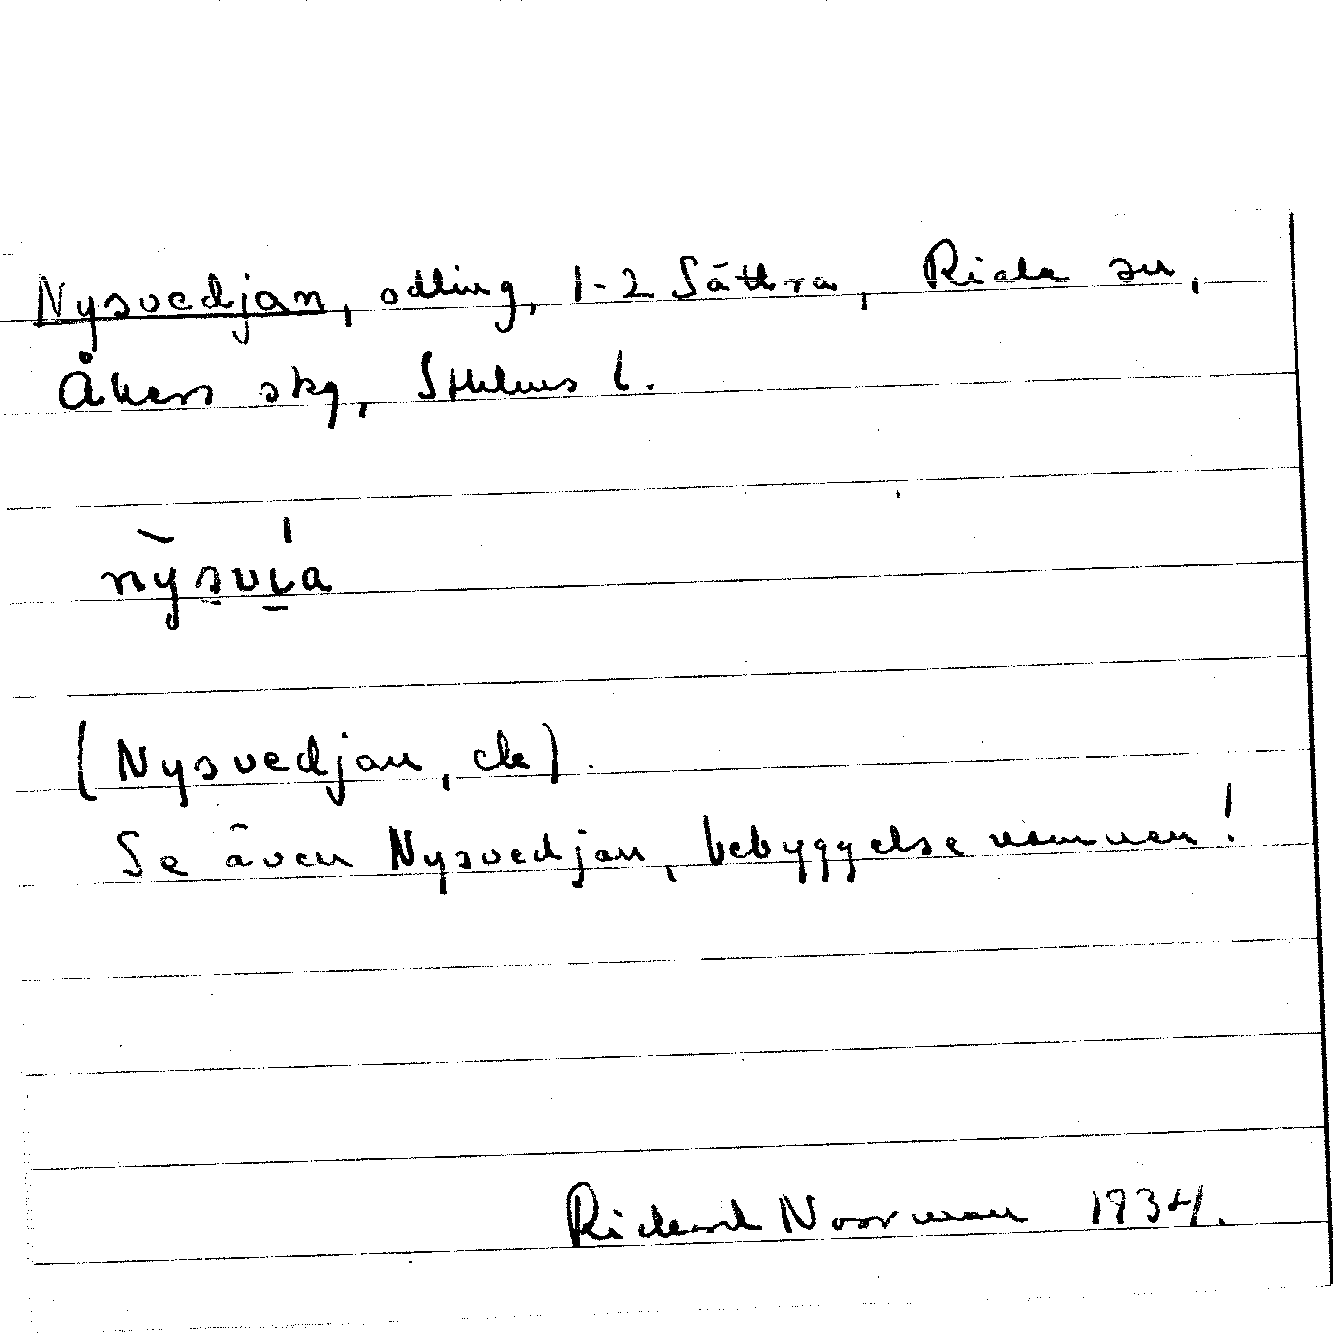 Nysvedjan, odling, 1-2 Säthra, Riala sn,
Åkers skg, Sthlms l.
nỳsvi̠a
(Nysvedjan, ek).
Se även Nysvedjan, bebyggelsenamnen!
Rickard Noorman 1934.